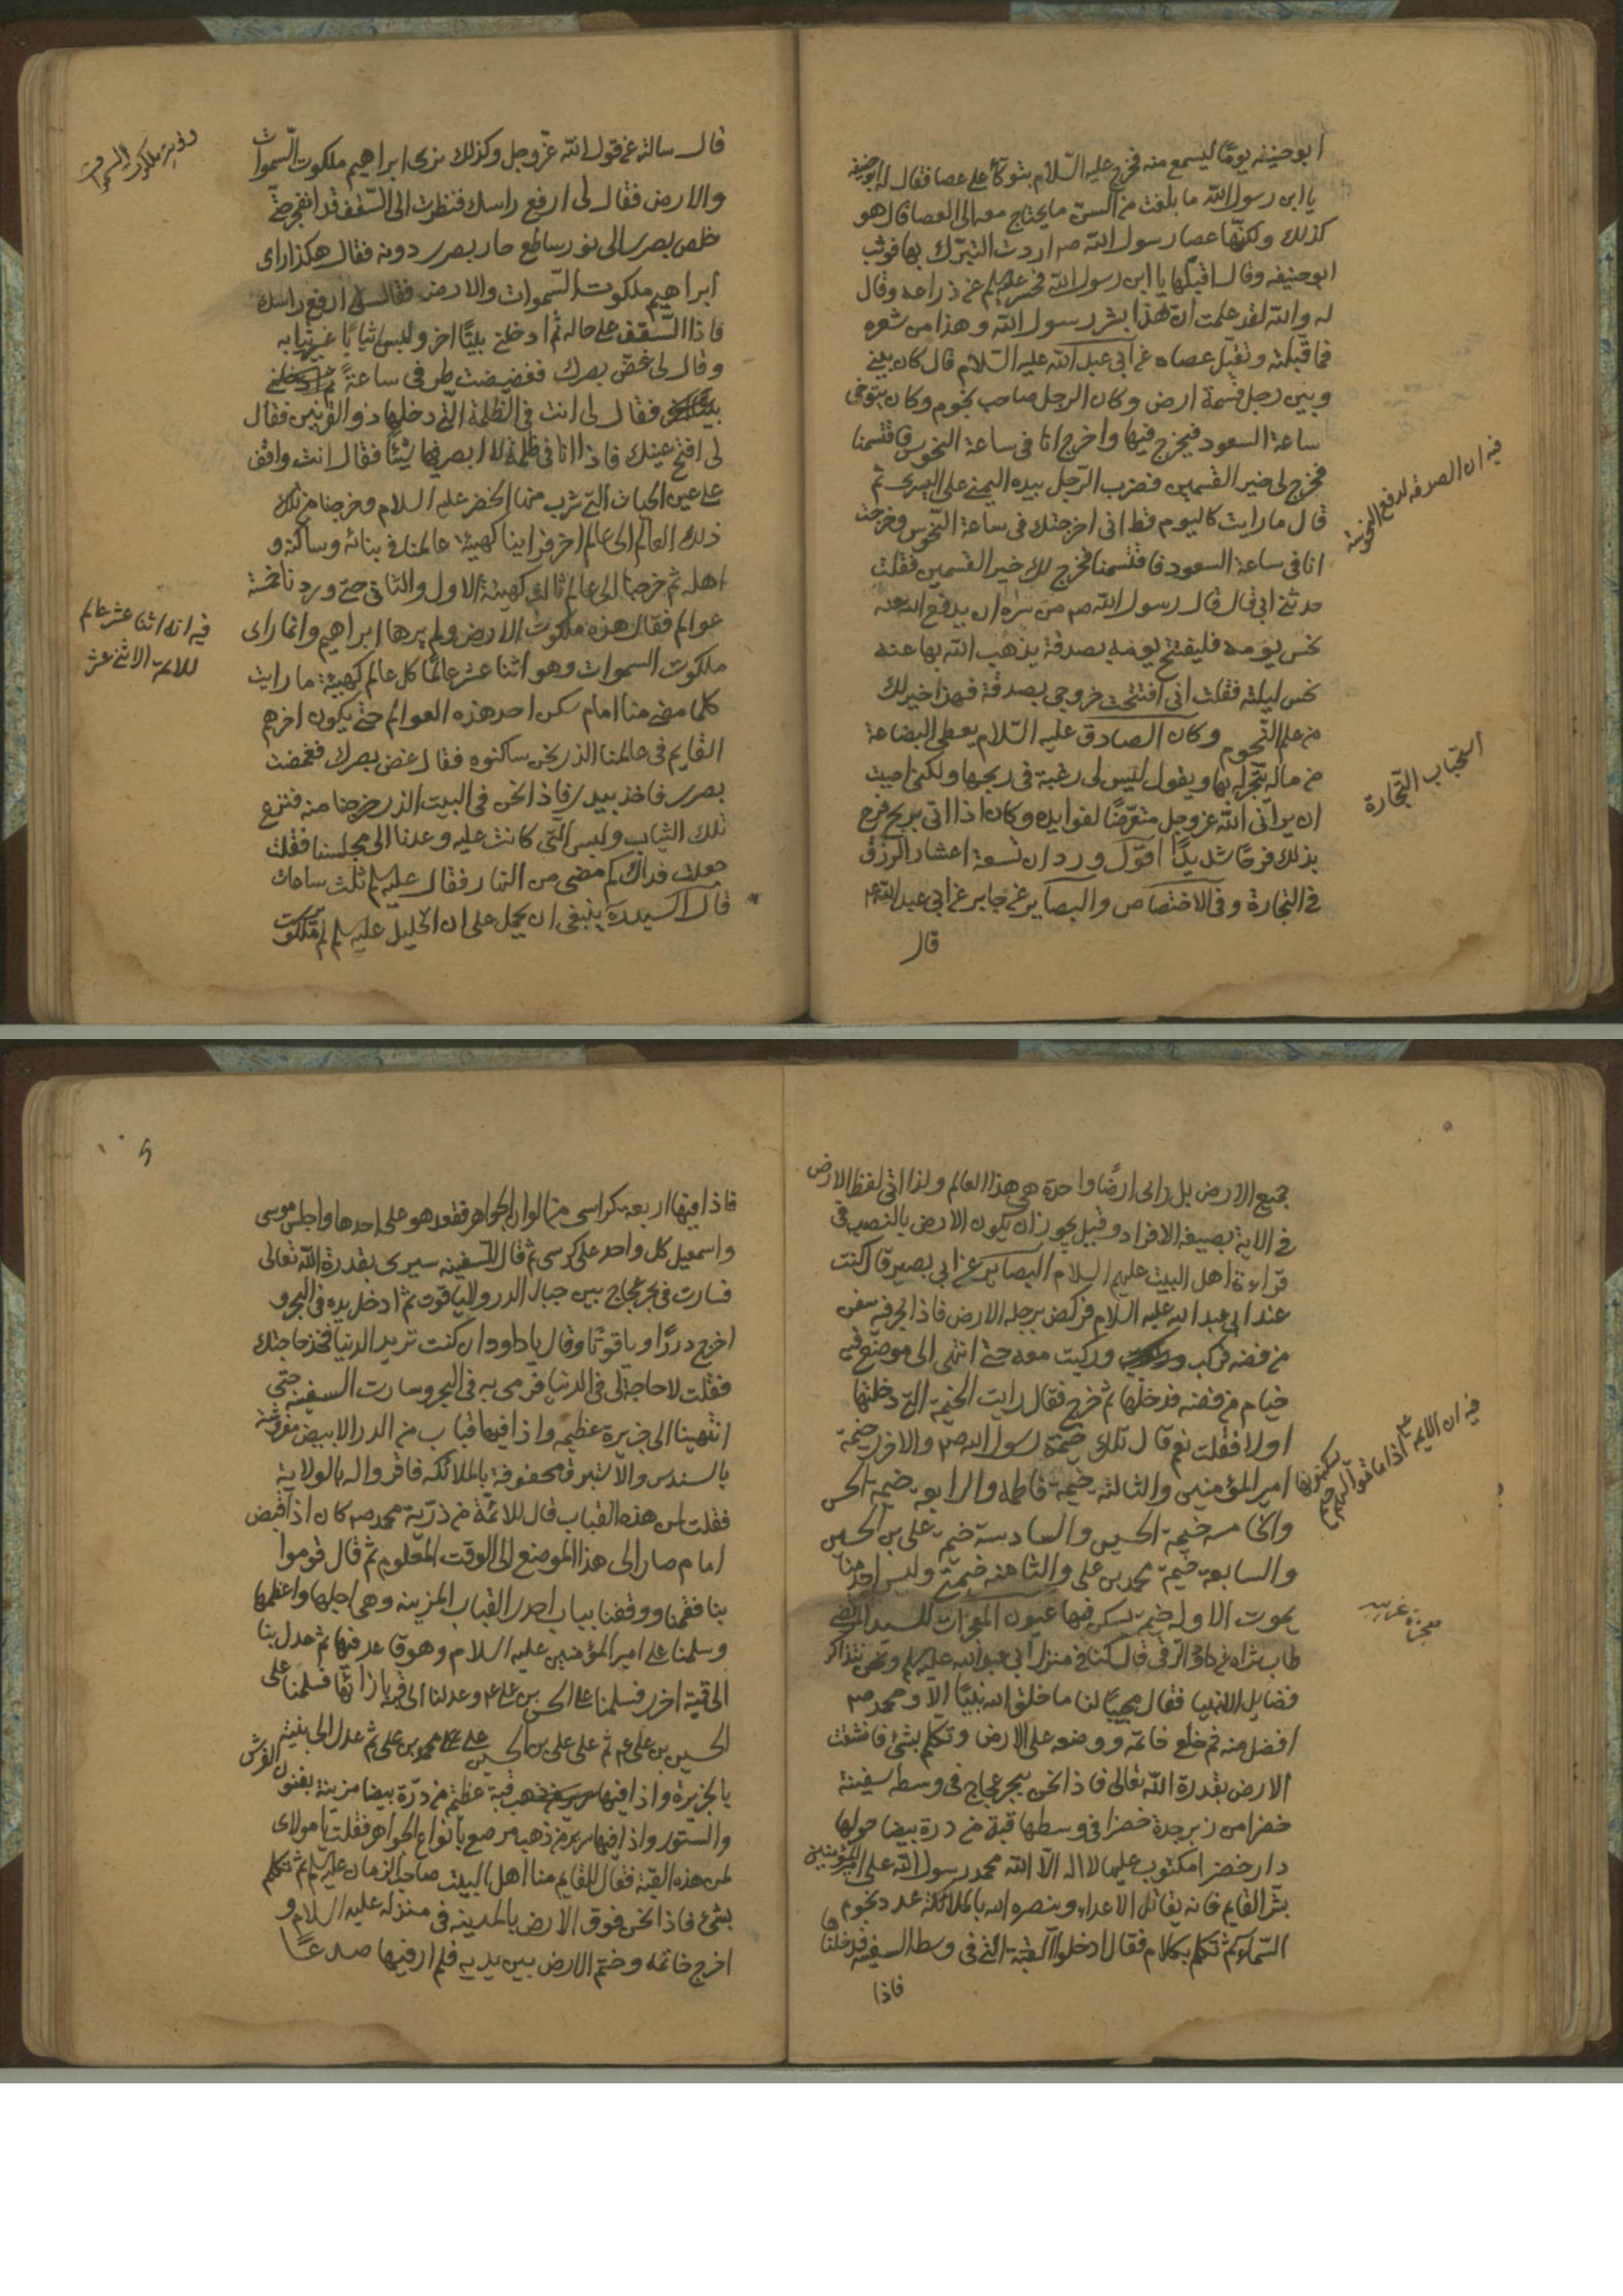 ابو حنيفه يومًا ليسمع منه فخرج عليه السّلام يتوكّأ على عصا فقال له ابو حنيفه
يا ابن رسول الله ما بلغت من السنّ ما يحتاج معه الى العصا قال هو
كذلك ولكنّها عصا رسول الله صم اردت التبرّك بها فوثب
ابو حنيفه وقال اقبلها يا ابن رسول الله فحسر عليه السلم عن ذراعه وقال
له والله لقد علمت ان هذا بشر رسول الله وهذا من شعره
فما قبلته وتقبل عصاه عن ابي عبد الله عليه السّلام قال كان بيني
وبين رجل قسمة ارض وكان الرجل صاحب نجوم وكان يتوخى
ساعة السعود فيخرج فيها واخرج انا في ساعة النحوس فاقتسمنا
فخرج لى خير القسمين فضرب الرّجل بيده اليمنى على اليسرى ثم
قال ما رايت كاليوم قط انى اخرجتك في ساعة النّحوس وخرجت
انا فى ساعة السعود فاقتسمنا فخرج لك خير القسمين فقلت
حدثنى ابى قال قال رسول الله صم من سره ان يدفع الله عنه
نحس يومه فليفتتح يومه بصدقة يذهب الله بها عنه
نحس ليلته فقلت انى افتتحت خروجى بصدقة فهذا خير لك
من علم النّجوم وكان الصادق عليه السّلام يعطى البضاعة
من ماله يتّجر له بها ويقول ليس لى رغبة فى ربحها ولكنى احببت
ان يرانى الله عز وجل متعرّضًا لفوايده وكان اذا اتى بربح فرح
بذلك فرحًا شديدًا اقول ورد ان تسعة اعشار الرزق
في التجارة وفى الاختصاص والبصاير عن جابر عن ابى عبد الله ع
قال
فيه ان الصدقه لدفع النحوسة
استحباب التّجارة
قال سالته عن قول الله عزّ وجل وكذلك نرى ابراهيم ملكوت السّموات
والارض فقال لى ارفع راسك فنظرت الى السّقف قد انفجر حتّى
خلص بصرى الى نور ساطع حار بصرى دونه فقال هكذا راى
ابراهيم ملكوت السّموات والارض فقال لى ارفع راسك
فاذا السّقف على حاله ثم ادخلنى بيتًا اخر ولبس ثيابًا غير ثيابه
وقال لى غضّ بصرك فغضضت طرفى ساعةً
فقال لى انت فى الظلمة الّتى دخلها ذو القرنين فقال
لى افتح عينك فاذا انا فى ظلمة لا ابصر فيها شيئًا فقال انت واقف
على عين الحيات التى شرب منها الخضر عليه السلام وخرجنا من تلك
ذلك العالم الى عالم اخر فراينا كهيئة عالمنا فى بنائه وساكنه و
اهله ثم خرجنا الى عالم ثالث كهيئة الاول والثانى حتى وردنا خمسة
عوالم فقال هذه ملكوت الارض ولم يرها ابراهيم وانما راى
ملكوت السموات وهو اثنا عشر عالمًا كل عالم كهيئة ما رايت
كلما مضى منا امام سكن احد هذه العوالم حتى يكون اخرهم
القايم فى عالمنا الذى نحن ساكنوه فقال غض بصرك فغمضت
بصرى فاخذ بيدى فاذا نحن فى البيت الذى خرجنا منه فنزع
تلك الثياب ولبس التى كانت عليه وعدنا الى مجلسنا فقلت
جعلت فداك كم مضى من النهار فقال عليه السلم ثلث ساعات
قال السيد ره ينبغى ان يحمل على ان الخليل عليه السلم لم ير ملكوت
رؤية ملكوت السموات
فيه انه اثنا عشر عالم
للائمة الاثنى عشر
جميع الارض بل راى ارضًا واحدة هى هذا العالم ولذا اتى لفظ الارض
فى الاية بصيغة الافراد وقيل يجوز ان يكون الارض بالنصب فى
قراءة اهل البيت عليهم السلام البصاير عن ابى بصير قال كنت
عند ابى عبد الله عليه السلام فركض برجله الارض فاذا بحر فيه سفن
من فضه فركب وركبت معه حتى انتهى الى موضع فيه
خيام من فضه فدخلها ثم خرج فقال رايت الخيمة التى دخلتها
اولا فقلت نعم قال تلك خيمة رسول الله صم والاخرى خيمة
امير المؤمنين والثالثه خيمة فاطمه والرابعه خيمة الحسن
والخامسه خيمة الحسين والسادسة خيمة على بن الحسين
والسابعه خيمة محمد بن على والثامنه خيمتى وليس احد منا
يموت الا وله خيمه يسكن فيها عيون المعجزات للسيد المرتضى
طاب ثراه عن داود الرقى قال كنا فى منزل ابى عبد الله عليه السلم ونحن نتذاكر
فضايل الانبيا فقال مجيبًا لنا ما خلق الله نبيًا الّا ومحمد صم
افضل منه ثم خلع خاتمه ووضعه على الارض وتكلم بشئ فانشقت
الارض بقدرة الله تعالى فاذا نحن ببحر عجاج فى وسطه سفينة
خضرا من زبرجدة خضرا فى وسطها قبة من درة بيضا حولها
دار خضرا مكتوب عليها لا اله الّا الله محمد رسول الله على امير المؤمنين
بشر القايم فانه يقاتل الاعداء وينصره الله بالملائكة عدد نجوم
السّماء ثم تكلم بكلام فقال ادخلوا القبة التى فى وسط السفينه فدخلناها
فاذا
فيه ان الائمه ع اذا ماتوا
معجزة غريبه
فاذا فيها اربعه كراسى من الوان الجواهر فقعد هو على احدها واجلس موسى
واسمعيل كل واحد على كرسى ثم قال للسفينه سيرى بقدرة الله تعالى
فسارت فى بحر عجاج بين جبال الدر والياقوت ثم ادخل يده فى البحر و
اخرج دررًا وياقوتًا وقال يا داود ان كنت تريد الدنيا فخذ حاجتك
فقلت لا حاجة لى فى الدنيا فرمى به فى البحر وسارت السفينه حتى
انتهينا الى جزيرة عظيمه واذا فيها قباب من الدر الابيض مفروشة
بالسندس والاستبرق محفوفة بالملائكه فاقروا له بالولاية
فقلت لمن هذه القباب قال للائمّة من ذرّية محمد صم كان اذا قبض
امام صار الى هذا الموضع الى الوقت المعلوم ثم قال قوموا
بنا فقمنا ووقفنا بباب احدى القباب المزينه وهى اجلها واعظمها
وسلمنا على امير المؤمنين عليه السلام وهو قاعد فيها ثم عدل بنا
الى قبة اخرى فسلمنا على الحسن بن على ع وعدلنا الى قبة بازائها فسلمنا على
الحسين بن على ع ثم على على بن الحسين على محمد بن على ثم عدل الى بنية
بالجزيرة واذا فيها قبة عظيمة من درّة بيضا مزينة بفنون الفرش
والستور واذا فيها سرير من ذهب مرصع بانواع الجواهر فقلت يا مولاى
لمن هذه القبّة فقال للقايم منا اهل البيت صاحب الزمان عليه السلم ثم تكلم
بشئ فاذا نحن فوق الارض بالمدينه فى منزله عليه السلام و
اخرج خاتمه وختم الارض بين يديه فلم ار فيها صدعًا